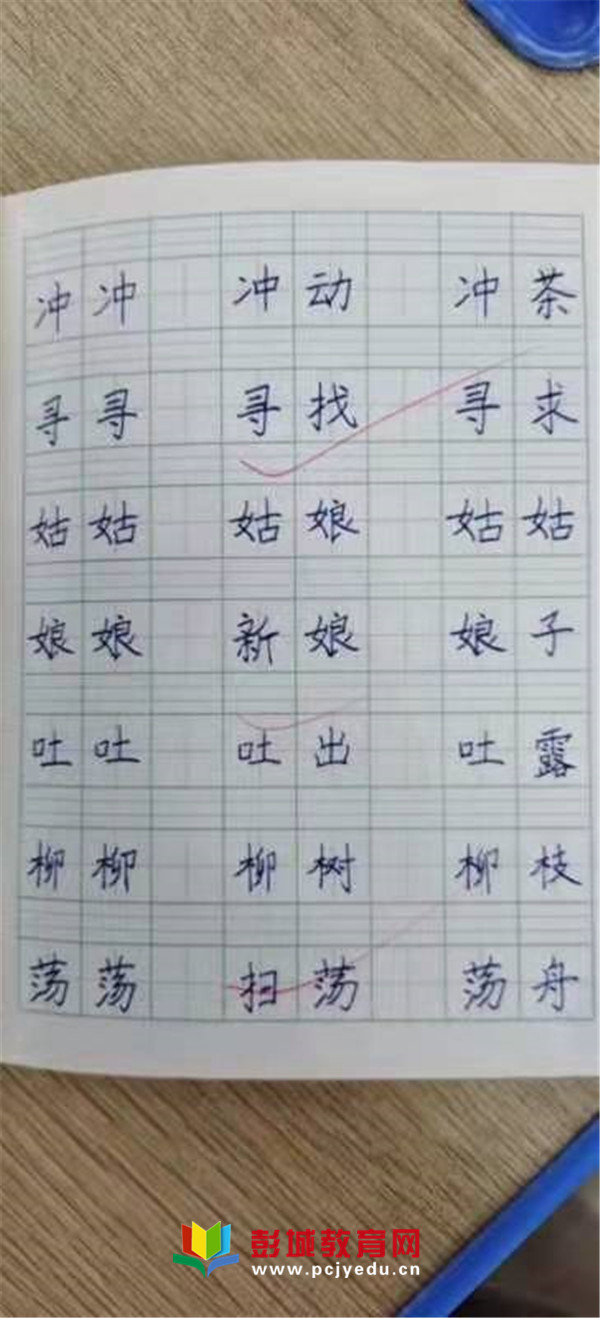 冲冲 冲动 冲茶
寻寻 寻找 寻求
姑姑 姑娘 姑姑
娘娘 新娘 娘子
吐吐 吐出 吐露
柳柳 柳树 柳枝
荡荡 扫荡 荡舟
彭城教育网
www.pcjyedu.cn